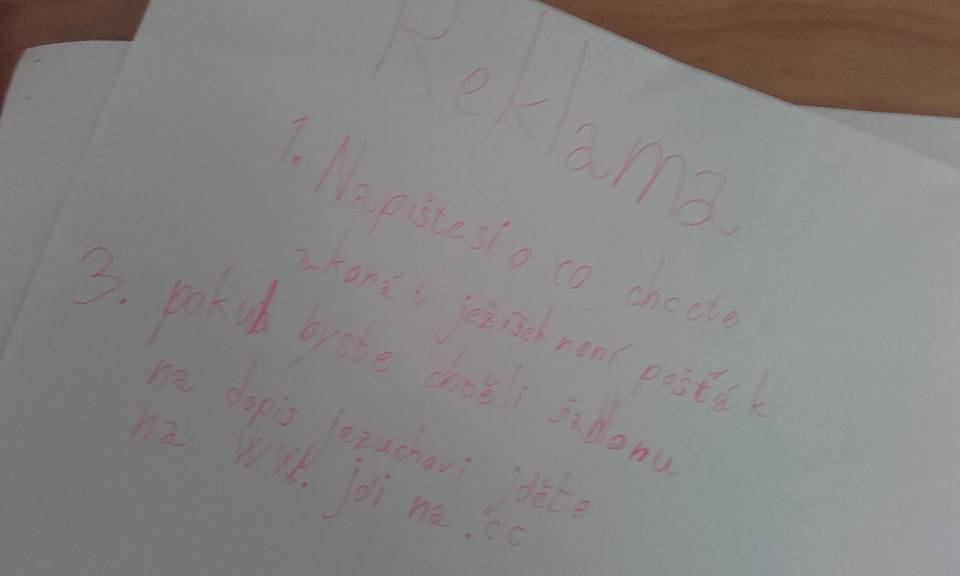 Reklama
1. Napište si o co chcete
a koná i ježíšek není pošťák
3. pokud byste chtěli šablonu
na dopis jezuchovi jděte
na WW. jdi na .cc